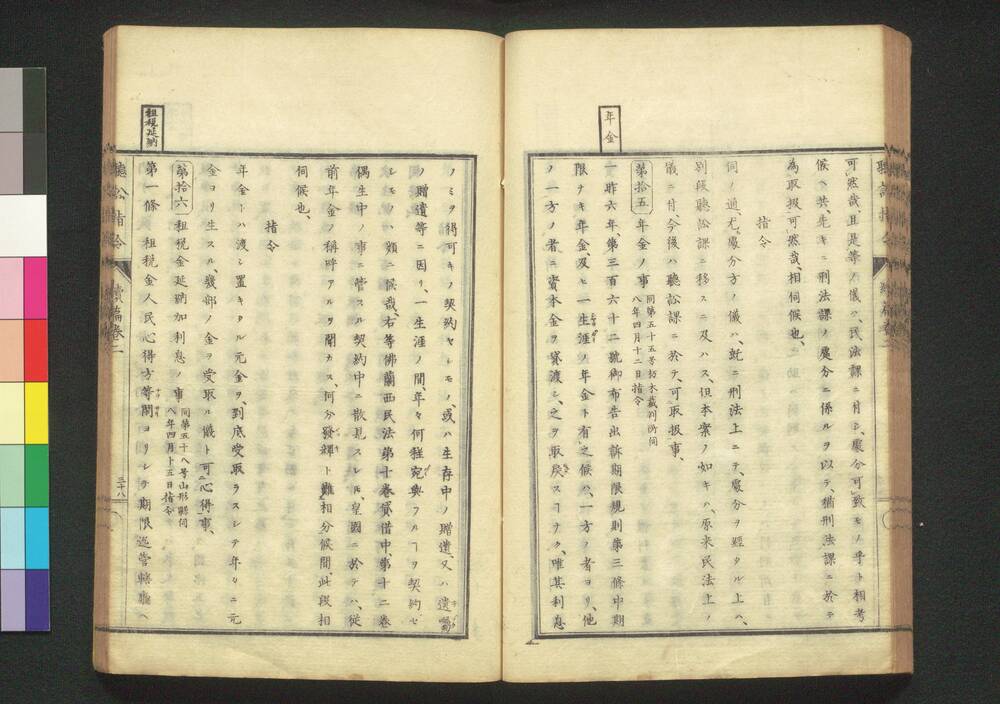 年金
可然哉且是等ノ儀ハ民法課ニ付シ處分可致モノ乎ト相考
候ヘ共先キニ刑法課ノ處分ニ係ルヲ以テ猶刑法課ニ於テ
為取扱可然哉相伺候也、
指令
伺ノ通、尤處分方ノ儀ハ、既ニ刑法上ニテ、處分ヲ經タル上ハ、
別段聽訟課ニ移スニ及ハス、但本案ノ如キハ、原来民法上ノ
儀ニ付、今後ハ聽訟課ニ於テ、可取扱事、
第拾五 年金ノ事
同第五十五号栃木裁判所伺
八年四月十二日指令
一昨六年、第三百六十二號御布告出訴期限規則第三條中期
限ナキ年金、及ヒ一生涯ノ年金ト有之候ハ、一方ノ者ヨリ、他
ノ一方ノ者ニ資本金ヲ貸渡シ、之ヲ取戻スヿナク、唯其利息
租税延納
ノミヲ得可キノ契約セシモノ、或ハ生存中ノ贈遺、又ハ遺囑
ノ贈遺等ニ因リ、一生涯ノ間、年々何程宛與フルヿヲ契約セ
シモノハ類ニ候哉、右等佛蘭西民法第十巻貸借中、第十二巻
偶生中ノ事ニ管スル契約中ニ散見スレ𪜈、皇國ニ於テハ、從
前年金ノ稱呼アルヲ聞カス、何分發輝ト難相分候間、此段相
伺候也、
指令
年金トハ渡シ置キタル元金ヲ、到底受取ラスシテ年々ニ元
金ヨリ生スル、幾部ノ金ヲ受取ル儀ト可心得事、
第拾六 租税金延納加利息ノ事
同第五十八号山形縣伺
八年四月十五日指令
第一條 租税金人民心得方等閑ヨリシテ期限迄管轄廳ヘ
聽訟指令 續篇巻二
三十八